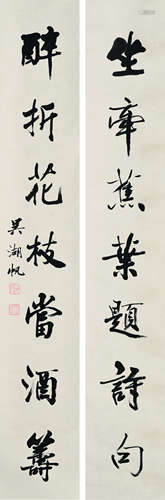 坐牵蕉葉題詩句
醉折花枝當酒籌
吴湖帆